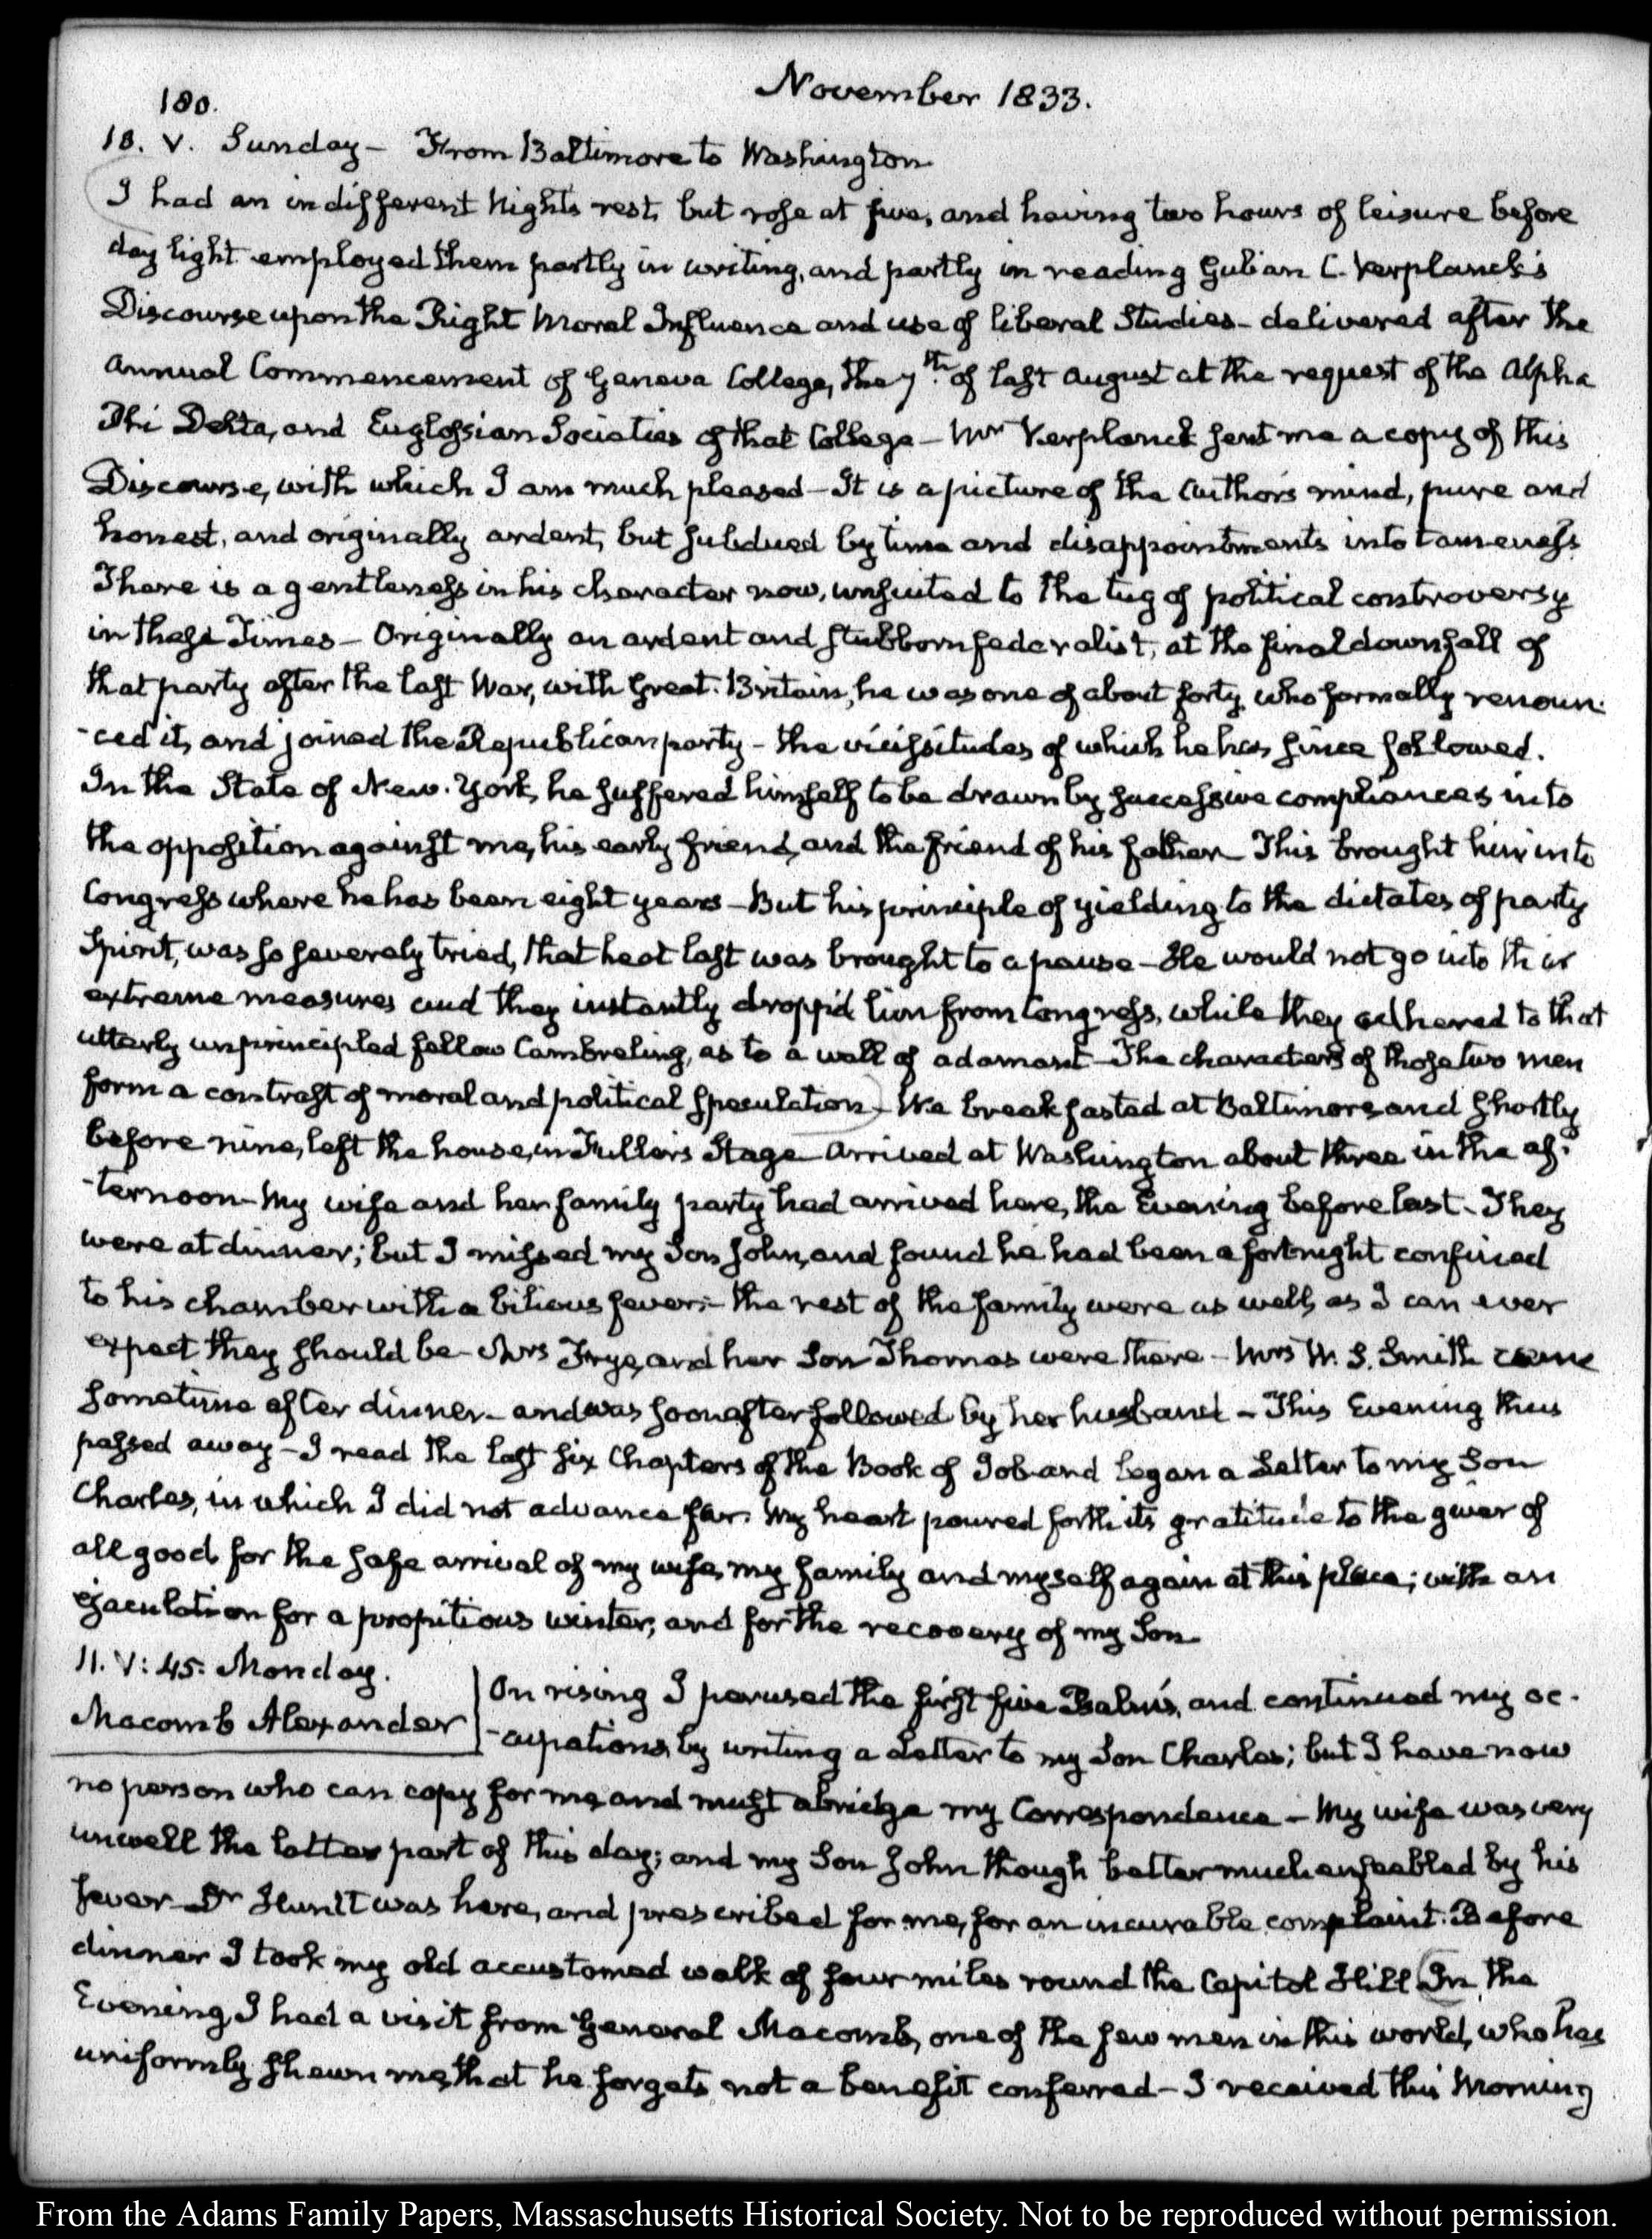 November 1833.
180.
10. V. Sunday – From Baltimore to Washington
I had an indifferent Night's rest, but rose at five, and having two hours of leisure before
day light employed them partly in writing, and partly in reading Gulian C. Verplanck's
Discourse upon the Right Moral Influence and use of liberal Studies – delivered after the
annual Commencement of Geneva College, the 7th. of last August at the request of the Alpha
Phi Delta, and Euglossian Societies of that College – Mr Verplanck sent me a copy of this
Discourse, with which I am much pleased – It is a picture of the author's mind, pure and
honest, and originally ardent, but subdued by time and disappointments into tameness.
There is a gentleness in his character now, unsuited to the tug of political controversy
in these Times – Originally an ardent and stubborn federalist, at the final downfall of
that party after the last War, with Great-Britain, he was one of about forty, who formally renoun-
-ced it, and joined the Republican party – the vicissitudes of which he has since followed.
In the State of New-York, he suffered himself to be drawn by successive compliances into
the opposition against me, his early friend, and the friend of his father – This brought him into
Congress where he has been eight years – But his principle of yielding to the dictates of party
Spirit, was so severely tried, that he at last was brought to a pause – He would not go into their
extreme measures and they instantly dropp'd him from Congress, while they adhered to that
utterly unprincipled fellow Cambreling, as to a wall of adamant – The characters of those two men
form a contrast of moral and political speculation – We breakfasted at Baltimore, and shortly
before nine, left the house, in Fuller's Stage – arrived at Washington about three in the af-
-ternoon – My wife and her family party had arrived here, the Evening before last – They
were at dinner; but I missed my Son John, and found he had been a fortnight confined
to his chamber with a bilious fever – the rest of the family were as well, as I can ever
expect they should be – Mrs Frye, and her Son Thomas were there – Mrs W. S. Smith came
sometime after dinner – and was soon after followed by her husband – This Evening thus
passed away – I read the last six Chapters of the Book of Job and began a Letter to my Son
Charles, in which I did not advance far. My heart poured forth its gratitude to the giver of
all good, for the safe arrival of my wife, my family and myself again at this place; with an
ejaculation for a propitious winter, and for the recovery of my Son.
11. V: 45. Monday.
Macomb Alexander
On rising I perused the first five Psalms, and continued my oc-
-cupations, by writing a Letter to my Son Charles; but I have now
no person who can copy for me, and must abridge my Correspondence – My wife was very
unwell the latter part of this day; and my Son John though better much enfeebled by his
fever – Dr Huntt was here, and prescribed for me, for an incurable complaint. Before
dinner I took my old accustomed walk of four miles round the Capitol Hill In the
Evening, I had a visit from General Macomb, one of the few men in this world, who has
uniformly shewn me, that he forgets not a benefit conferred – I received this Morning
From the Adams Family Papers, Massachusetts Historical Society. Not to be reproduced without permission.